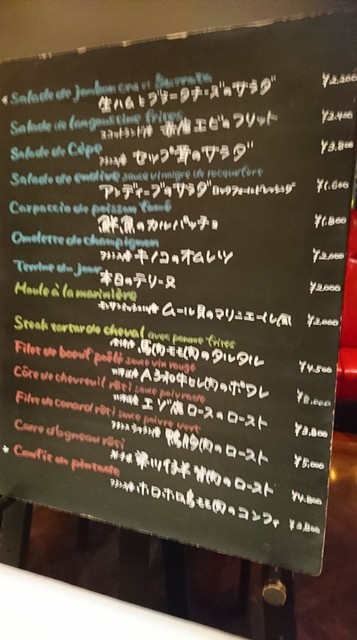 Salade de jambon cru et Burrata
生ハムとブラータチーズのサラダ ¥2,300
Salade de langoustine frites
スコットランド産 赤座エビのフリット ¥2,400
Salade de Cèpe
フランス産 セップ茸のサラダ ¥3,800
Salade de endive sauce vinaigre de rocquefort
アンディーブのサラダ ロックフォールドレッシング ¥1,600
Carpaccio de poisson
鮮魚のカルパッチョ ¥1,800
Omelette de champignon
フランス産 キノコのオムレツ ¥2,000
Terrine du jour
本日のテリーヌ ¥2,000
Moule à la marinière
ムール貝のマリニエール風 ¥2,000
Steak tartar de cheval avec pomme frites
馬肉モモ肉のタルタル ¥4,500
Filet de boeuf poêlé sauce vin rouge
牛ヒレ肉のポワレ
Côte de chevreuil rôti sauce poivrade
エゾ鹿ロースのロースト ¥3,800
Filet de canard rôti sauce poivre vert
鴨胸肉のロースト ¥5,000
Carre d'agneau rôti
骨付仔羊背肉のロースト ¥4,800
Confit de pintade
フランス産 ホロホロ鳥モモ肉のコンフィ ¥3,800